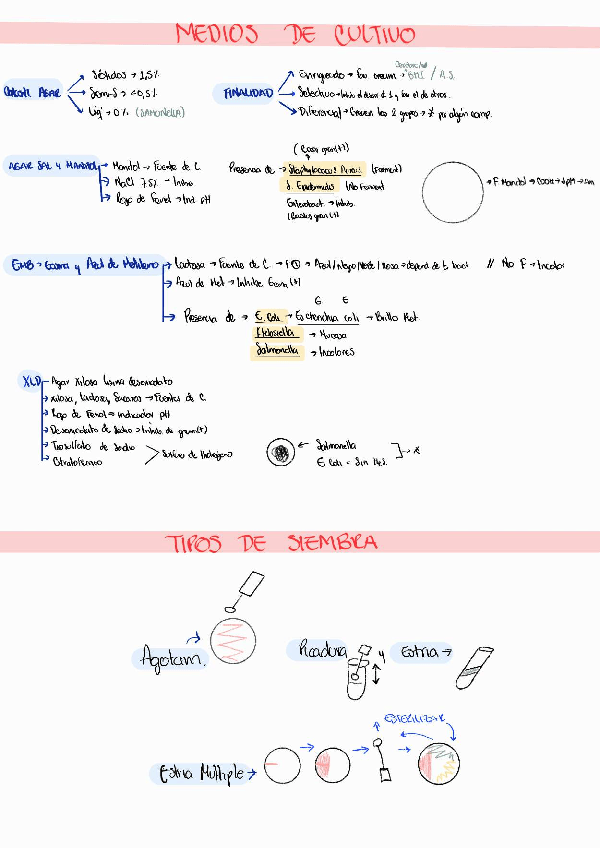 MEDIOS DE CULTIVO
AGAR
Sólidos → 1,5%
Sem-S → <0,5%
Liq → 0% (SAMONELLA)
FINALIDAD
Enriquecido → BHI / A.S.
Selectivo → de 1 y fav el de otros.
Diferencial → Crecen los 2 grupos → * por algún comp.
AGAR SAL Y MANITOL
Manitol → Fuente de C
NaCl 7,5% → Inhib
Rojo de Fenol → Ind pH
Presencia de →
(Cocos gram(+))
Staphylococcus Aureus (Ferment)
S. Epidermidis (No Ferment
Enterobact. → Inhib.
(Bacilos gram(-))
F Manitol → → ↓pH →
EMB → Eosina y Azul de Metileno
Lactosa → Fuente de C → F → Azul/Negro/Verde/Rosa → depend de t bact // No F → Incolor
Azul de Met → Inhibe Gram (+)
G E
Presencia de → E. Coli → Escherichia coli → Brillo Met.
Klebsiella → Mucosa
Salmonella → Incoloros
XLD
Agar Xilosa lisina desoxicolato
Xilosa, Lactosa, Sacarosa → Fuentes de C.
Rojo de Fenol = indicador pH
Desoxicolato de Sodio → Inhib. de gram(+)
Tiosulfato de Sodio
Sulfuro de Hidrogeno
Salmonella
E Coli = Sin
TIPOS DE SIEMBRA
Agotam.
Picadura y Estria →
ESTERILIZAR
Estria Multiple →